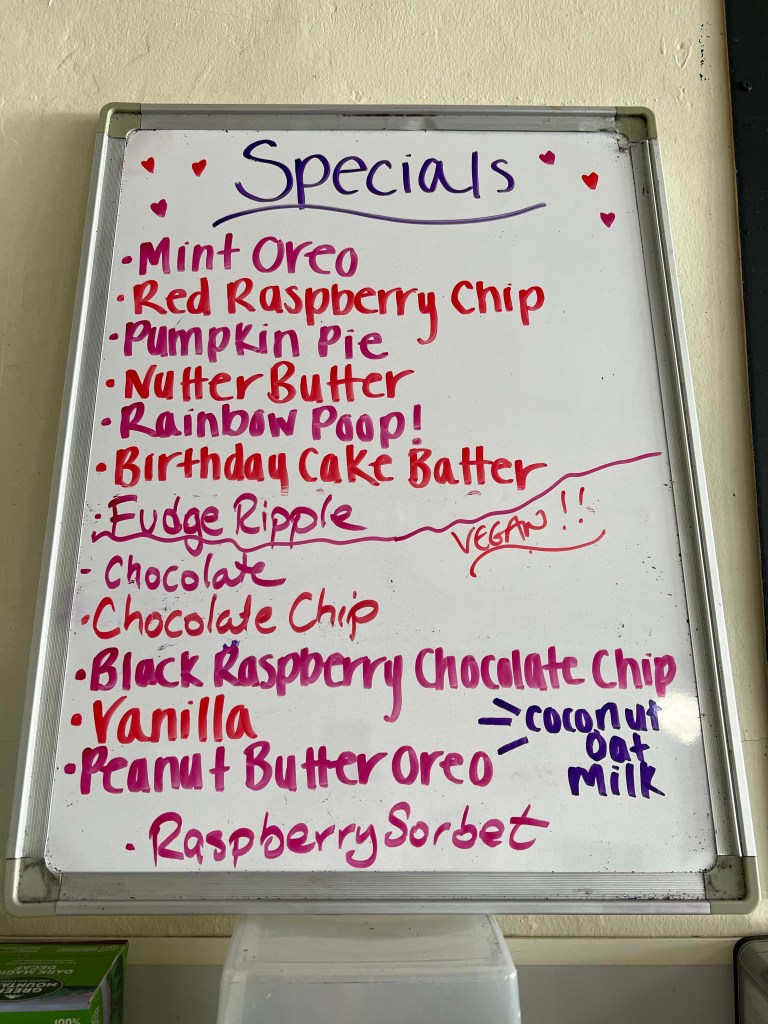 Specials
• Mint Oreo
• Red Raspberry Chip
• Pumpkin Pie
• Nutter Butter
• Rainbow Poop!
• Birthday Cake Batter
• Fudge Ripple
VEGAN!!
- Chocolate
• Chocolate Chip
• Black Raspberry Chocolate Chip
• Vanilla
coconut
oat
Milk
• Peanut Butter Oreo
• Raspberry Sorbet
DARK MAGIC
DECAF
GREEN
MOUNTAIN
100%